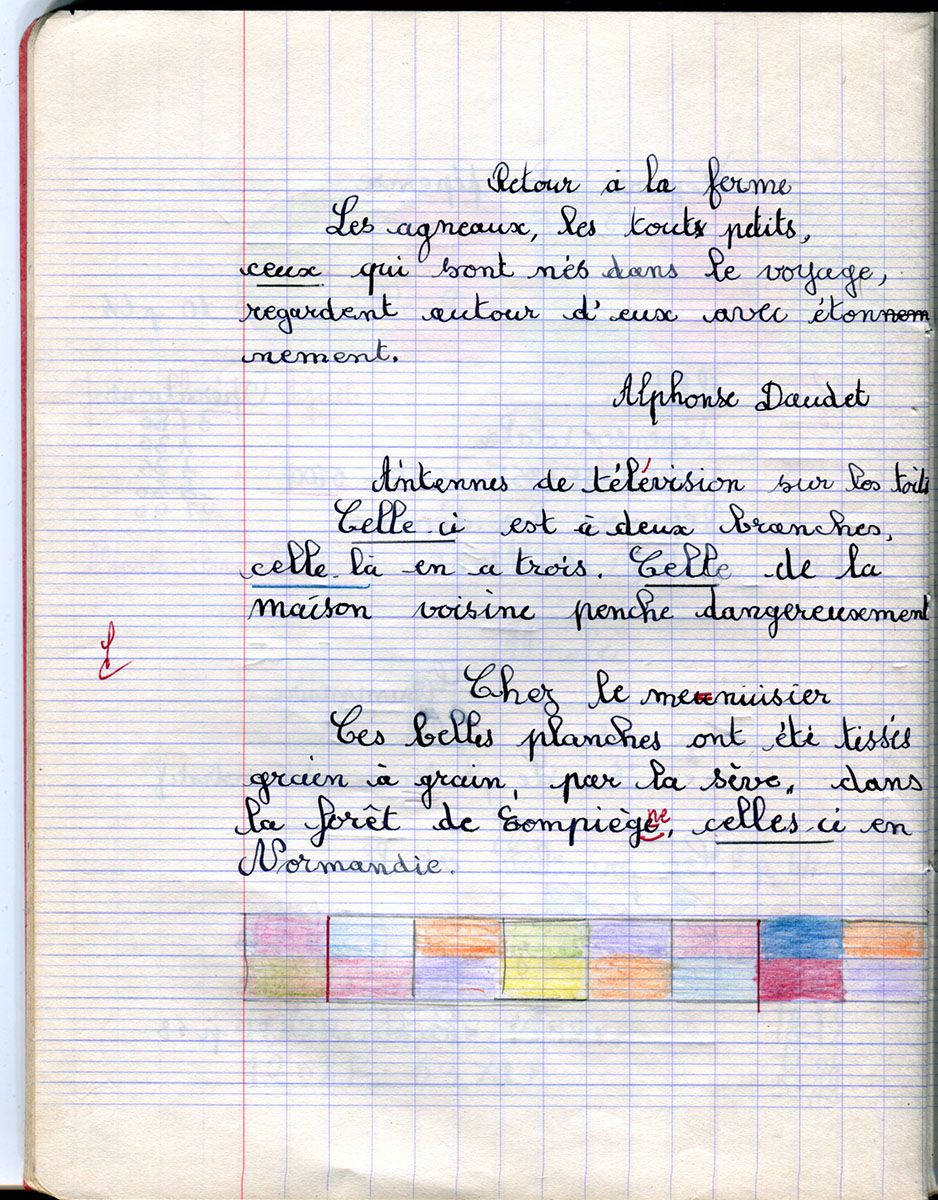 Retour à la ferme
Les agneaux, les touts petits,
ceux qui sont nés dans le voyage,
regardent autour d'eux avec étonnem
nement.
Alphonse Daudet
Antennes de télévision sur les toits
Celle ci est à deux branches,
celle là en a trois. Celle de la
maison voisine penche dangereusement
Chez le menuisier
Ces belles planches ont été tissés
grain à grain, par la sève, dans
la forêt de Compiègne, celles ci en
Normandie.